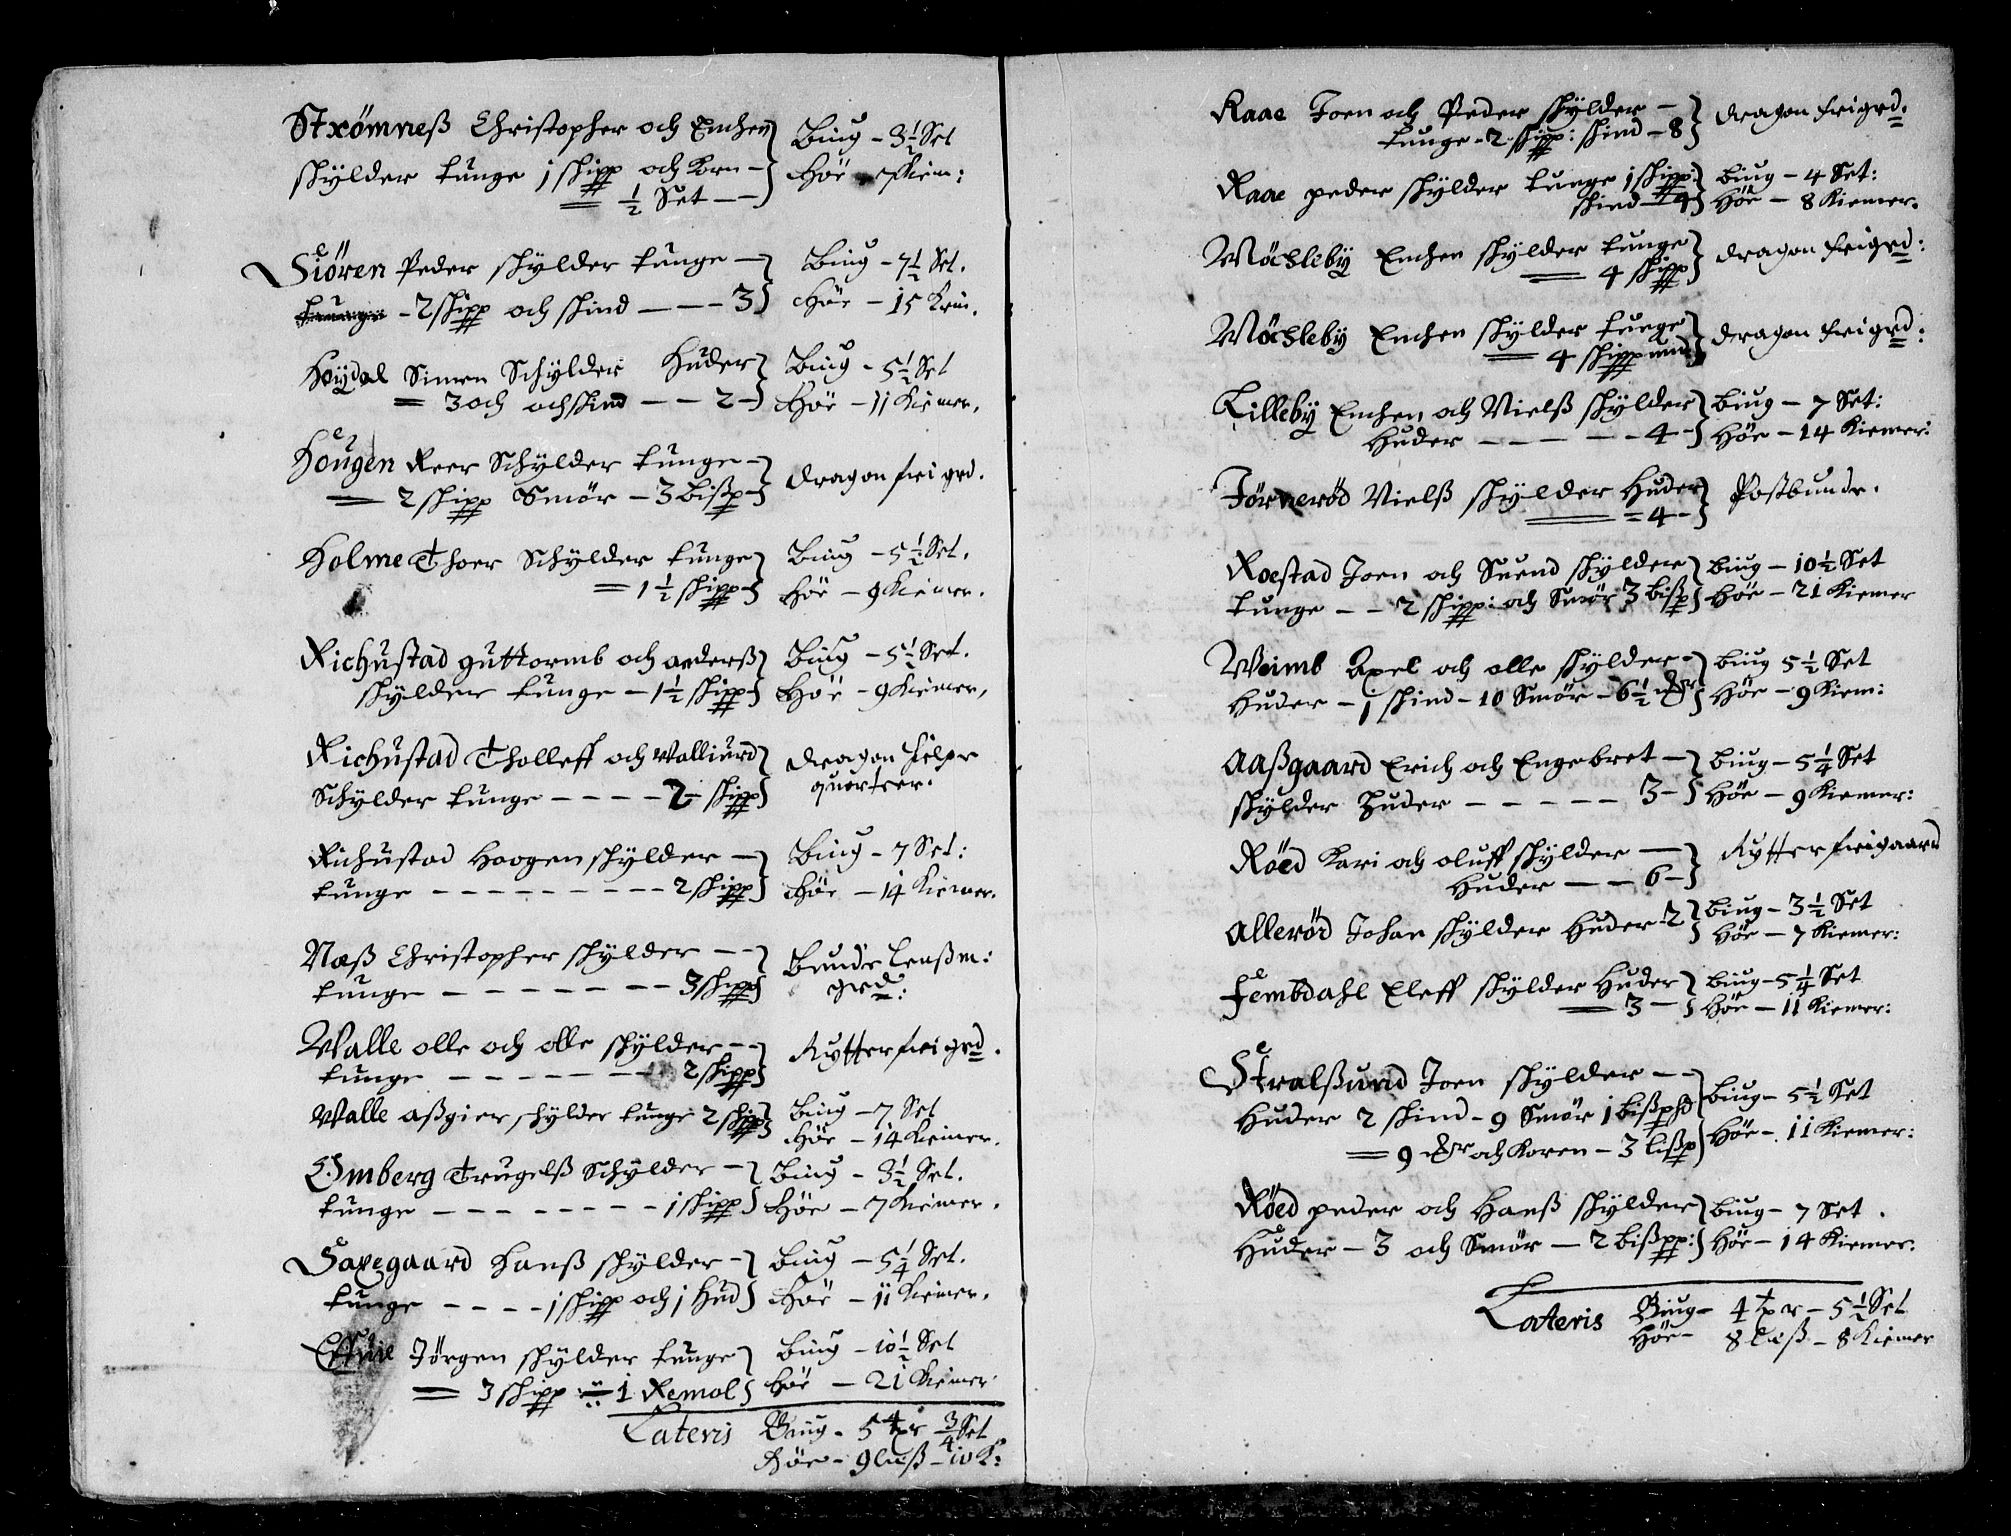 Strömneß Christopher och Enchen
skylder tunge j skipp och Korn —
½ Set — —
Biug – 3½ Set
Höe – 7 Kiem:
Siören Peder skylder tunge —
– 2 skipp och skind — — – 3
Biug – 7½ Set.
Höe – 15 Kim.
Höydal Simen Schylder Huder
= 3 och och skind — — 2 –
Biug – 5½ Set
Höe – 11 Kiemer.
Hougen Reer Schylder tunge —
— 2 skipp Smör – 3 bißp –
dragon frigrd.
Holme Thoer Schylder tunge
= 1½ skipp –
Biug – 5½ Set.
Höe – 9 Kiemer.
Richustad guttormb och anderß
skylder tunge – 1½ skipp –
Biug – 5½ Set.
Höe – 9 Kiemer,
Richustad Tholleff och Valliurd
Schylder tunge – – – – 2 – skipp
dragon hielpe
quarteer.
Richustad Haagen skylder —
tunge – – – – – – – – – 2 skipp
Biug – 7 Set:
Höe – 14 Kiemer.
Næß Christopher skylder — –
tunge — – – – – – — 3 skipp
Bunde Lenßm:
grd:
Walle olle och olle skylder – –
tunge — – – – – — 2 skipp
Rytter frigrd.
Walle aßgier skylder tunge 2 skipp
Biug – 7 Set
Höe – 14 Kiemer.
Omberg Trugelß Schylder –
tunge – – – – – – – – – 1 skipp
Biug – 3½ Set.
Höe – 7 Kiemer.
Saxegaard Hanß skylder –
tunge – – – – j skipp och j Hud
Biug – 5¼ Set.
Höe – 11 Kiemer.
Jörgen skylder tunge
= 3 skipp 1 Remol
Biug – 10½ Set
Höe – 21 Kiemer
Lateris Biug – 5 tr ¾ Set
Höe – 9 laß – 10 K:
Raae Joen och Peder skylder –
tunge – 2 skipp: skind – 8
dragon frigrd.
Raae peder skylder tunge 1 skipp:
skind – 4
biug – 4 Set:
Höe – 8 Kiemer.
Möcsleby Enchen skylder tunge
= 4 skipp
dragon frigrd:
Möcsleby Enchen skylder tunge
= 4 skippund
dragon frigrd:
Lilleby Enchen och Nielß skylder
Huder – – – – – – 4 –
biug – 7 Set:
Höe – 14 Kiemer:
Törnerød Nielß skylder Huder
= 4 –
Postbunde.
Roestad Joen och Suend skylder
tunge – – 2 skipp: och Smör 3 bißp
biug – 10½ Set
Höe – 21 Kiemer
Weimb Axel och olle skylder –
Huder – j skind – 10 Smör – 6½
biug 5½ Set
Höe – 9 Kiem:
Aaßgaard Erich och Engebret –
skylder Huder – – – – – 3 –
biug – 5¼ Set
Höe – 9 Kiemer:
Röed Kari och oluff skylder —
Huder — – 6 –
Rytter frigaard
Allerød Johan skylder Huder – 2
biug – 3½ Set
Höe – 7 Kiemer:
Fembdahl Eleff skylder Huder
= 3 –
biug – 5¼ Set
Höe – 11 Kiemer:
Stralßund Joen skylder – –
Huder 2 skind – 9 Smör 1 bißpd
= 9 och Koren – 3 lißp
biug – 5½ Set
Höe – 11 Kiemer:
Röed peder och Hanß skylder
Huder – 3 och Smör — 2 bißpp:
biug – 7 Set.
Höe – 14 Kiemer.
Lateris Biug – 4 tr – 5½ Set
Höe – 8 Laß – 8 Kiemer